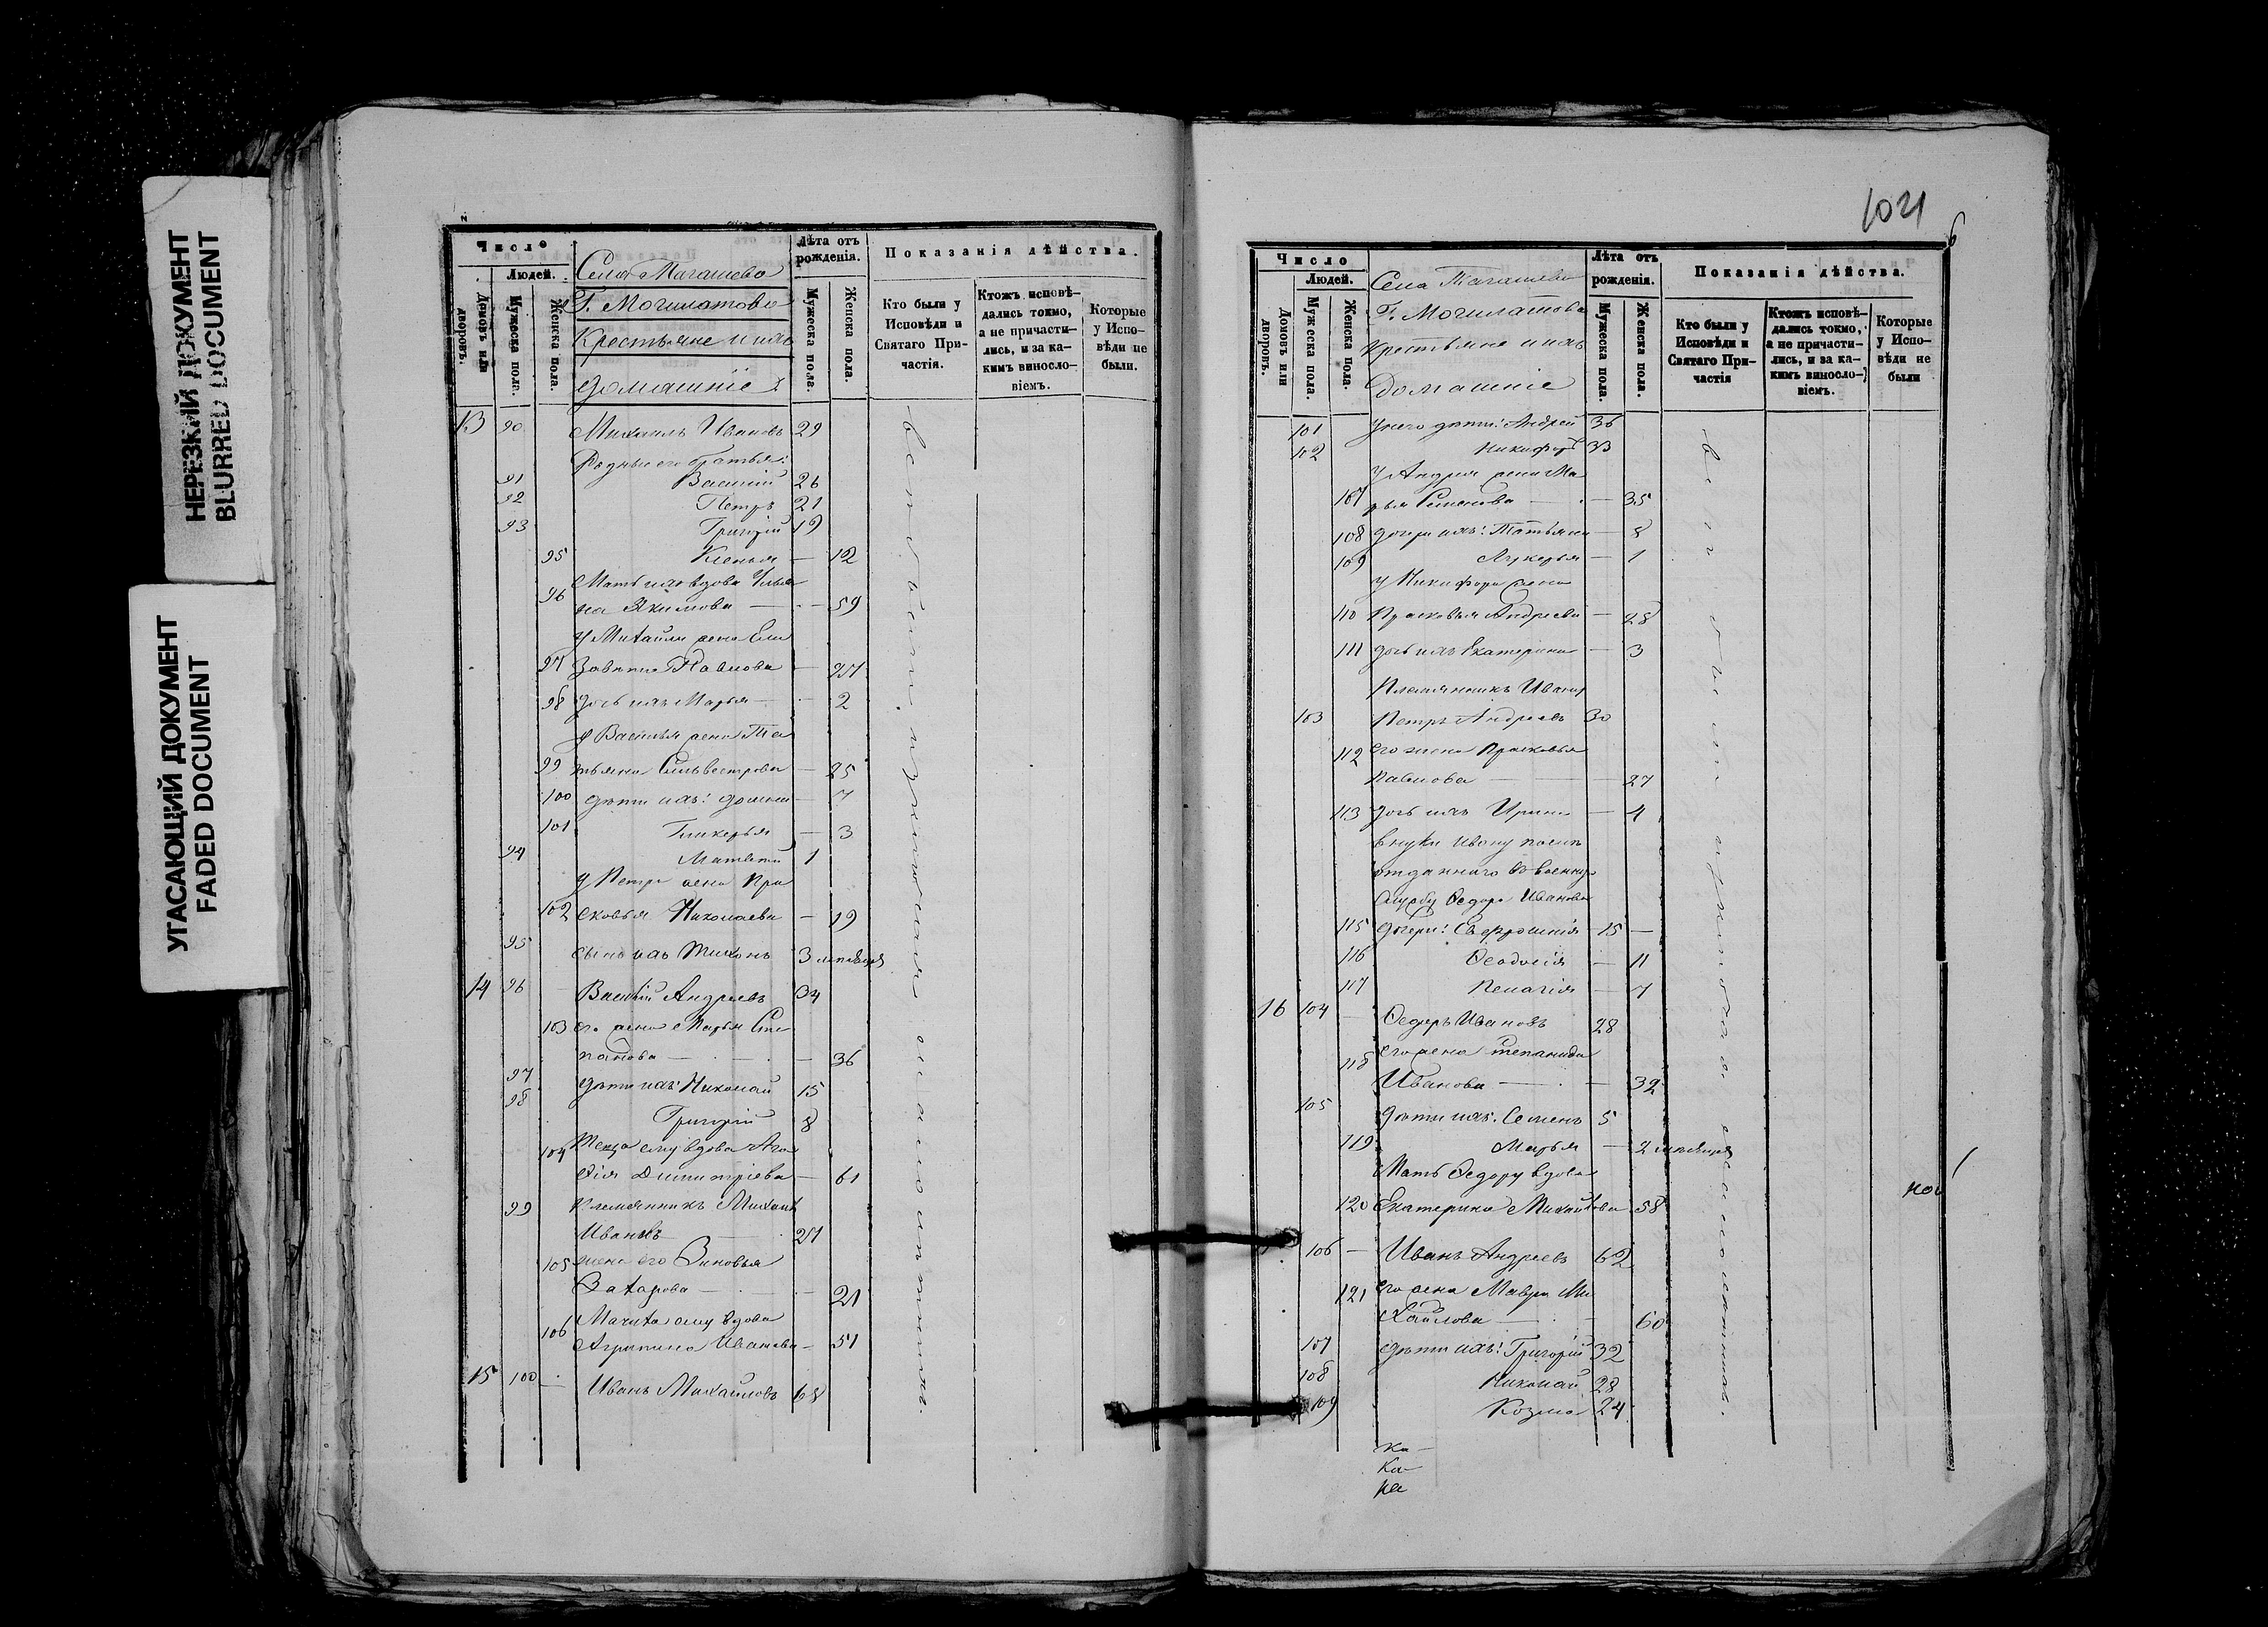 НЕРЕЗКИЙ ДОКУМЕНТ
BLURRED DOCUMENT
УГАСАЮЩИЙ ДОКУМЕНТ
FADED DOCUMENT
Число
Людей.
Домовъ или дворовъ.
Мужеска пола.
Женска пола.
Села
Г.
Крестьяне и ихъ
домашніе
Лѣта отъ рожденія.
Мужеска пола.
Женска пола.
Показанія дѣйства.
Кто были у Исповѣди и Святаго При-
частія.
Ктожъ исповѣ-
дались токмо,
а не причасти-
лись, и за ка-
кимъ винosло-
віемъ.
Которые
у Испо-
вѣди не
были.
13 90 Михаилъ Ивановъ 29
Родные его братья:
91 Василій 26
92 Петръ 21
93 Григорій 19
95 Ксенья — 12
Мать ихъ вдова Улья
96 на Якимова — 59
у Михаила жена Ели
97 завета Павлова — 27
98 дочь ихъ Марья — 2
у Василья жена Та
99 тьяна Сильвестрова — 25
100 дѣти ихъ: — 7
101 Гликерья — 3
94 Матвей 1
у Петра жена Пра
102 сковья Николаева — 19
95 сынъ ихъ Тихонъ 3 мѣсяца
14 96 Василій Андреевъ 34
103 его жена Марья Сте
панова — 36
97 дѣти ихъ: Николай 15
98 Григорій 8
104 Теща ему вдова Ага
Димитріева — 61
99 племянникъ Михаилъ
Ивановъ 21
105 жена его Зиновья
Захарова — 21
106 Мачиха ему вдова
Агрипина Иванова — 51
15 100 Иванъ Михайловъ 68
1021
Число
Людей.
Домовъ или дворовъ.
Мужеска пола.
Женска пола.
Села
Г.
Крестьяне и ихъ
домашніе
Лѣта отъ
рожденія.
Мужеска пола.
Женска пола.
Показанія дѣйства.
Кто были у
Исповѣди и
Святаго При-
частія
Ктожъ исповѣ-
дались токмо,
а не причасти-
лись, и за ка-
кимъ виносло-
віемъ.
Которые
у Испо-
вѣди не
были
101 у него дѣти: Андрей 36
102 Никифоръ 33
у Андрея жена Ма
107 рья Семенова — 35
108 дочери ихъ: Татьяна — 8
109 Лукерья — 1
у Никифора жена
110 Прасковья Андреева — 28
111 дочь ихъ Екатерина — 3
Племянникъ Ивану
103 Петръ Андреевъ 30
112 его жена Прасковья
Павлова — 27
113 дочь ихъ Ирина — 4
внуки Ивану послѣ
отданнаго въ военную
службу Ѳедора Иванова
115 дочери: 15 —
116 Ѳеодосія — 11
117 Пелагія — 7
16 104 Ѳедоръ Ивановъ 28
его жена Степанида
118 Иванова — 32
105 дѣти ихъ: Семенъ 5
119 Марья — 2 мѣсяца
Мать Ѳедору вдова
120 Екатерина Михайлова 58
106 — Иванъ Андреевъ 62
121 его жена Мавра Ми
хайлова — 60
107 дѣти ихъ: Григорій 32
108 Николай 28
109 Козма 24